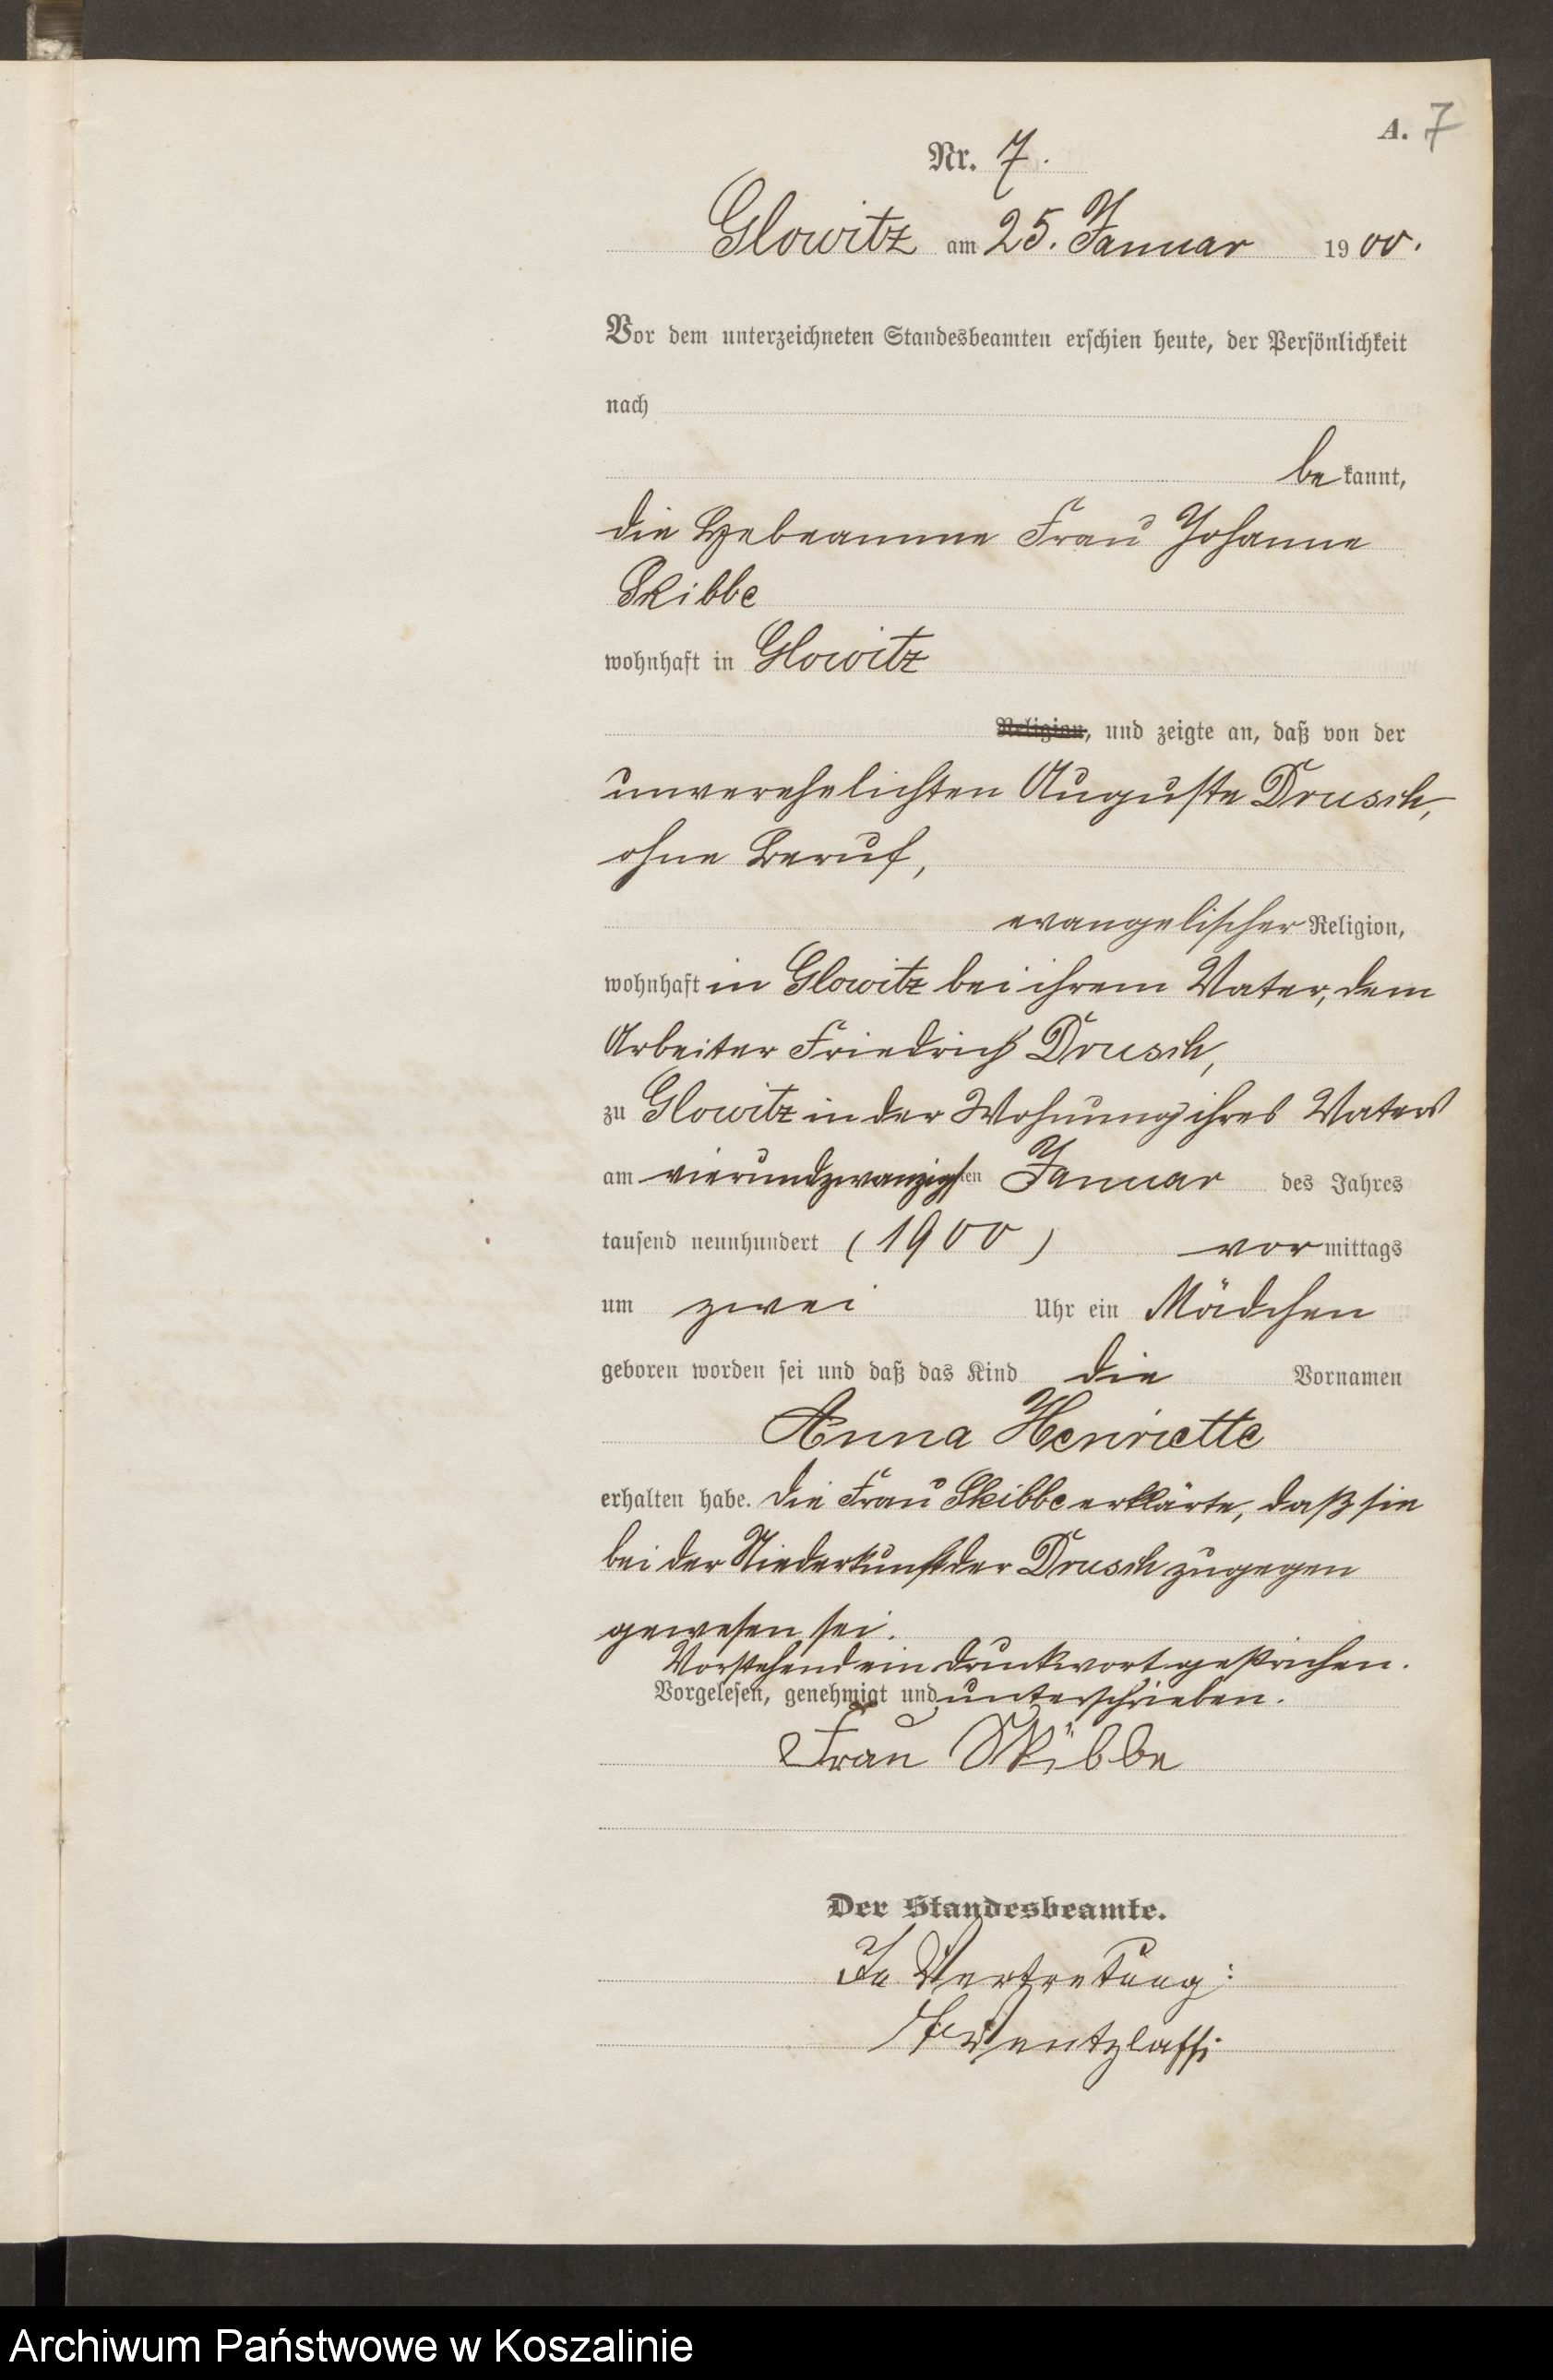 A. 7
Nr. 7.
Glowitz am 25. Januar 1900.
Vor dem unterzeichneten Standesbeamten erschien heute, der Persönlichkeit
nach
bekannt,
die Hebeamme Frau Johanne
Skibbe
wohnhaft in Glowitz
Religion, und zeigte an, daß von der
unverehelichten Auguste Drusch,
ohne Beruf,
evangelischer Religion,
wohnhaft in Glowitz bei ihrem Vater, dem
Arbeiter Friedrich Drusch,
zu Glowitz in der Wohnung ihres Vaters
am vierundzwanzigsten Januar des Jahres
tausend neunhundert (1900) vormittags
um zwei Uhr ein Mädchen
geboren worden sei und daß das Kind die Vornamen
Anna Henriette
erhalten habe. Die Frau Skibbe erklärte, daß sie
bei der Niederkunft der Drusch zugegen
gewesen sei.
Vorstehend ein Druckwort gestrichen.
Vorgelesen, genehmigt und unterschrieben.
Frau Skibbe
Der Standesbeamte.
In Vertretung:
Wentzlaff
Archiwum Państwowe w Koszalinie